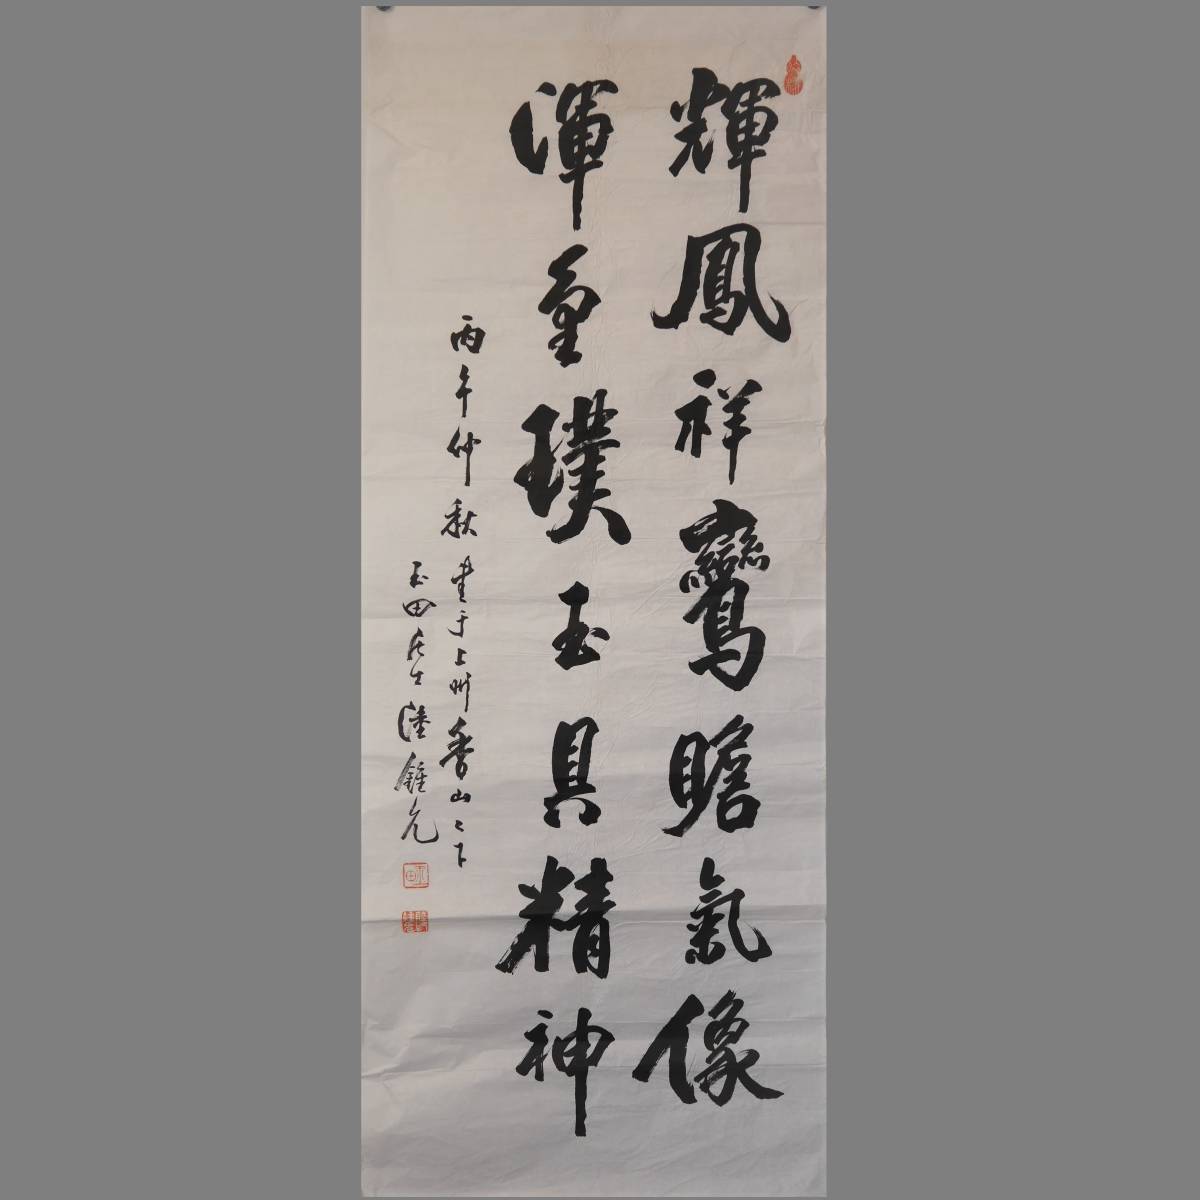 輝鳳祥鸞瞻氣像
渾金璞玉具精神
丙午仲秋書于上州香山之下
玉田居士陸鍾允